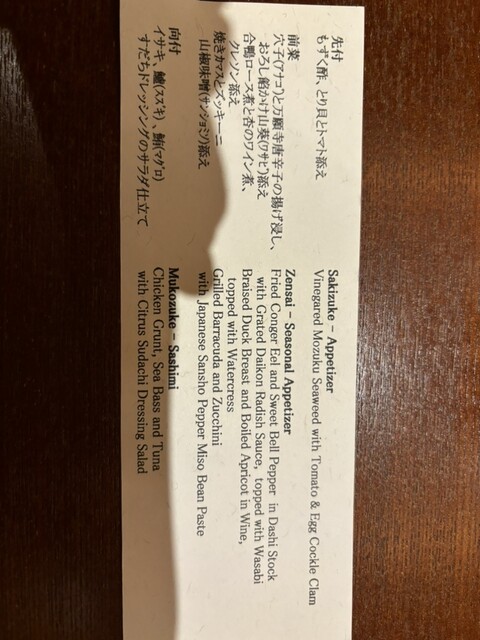 先付
もずく酢、とり貝とトマト添え
前菜
穴子(アナゴ)と万願寺唐辛子の揚げ浸し、
おろし餡かけ山葵(ワサビ)添え
合鴨ロース煮と杏のワイン煮、
クレソン添え
焼きカマスとズッキーニ
山椒味噌(サンショミソ)添え
向付
イサキ、鱸(スズキ)、鮪(マグロ)
すだちドレッシングのサラダ仕立て
Sakizuke – Appetizer
Vinegared Mozuku Seaweed with Tomato & Egg Cockle Clam
Zensai – Seasonal Appetizer
Fried Conger Eel and Sweet Bell Pepper in Dashi Stock
with Grated Daikon Radish Sauce, topped with Wasabi
Braised Duck Breast and Boiled Apricot in Wine,
topped with Watercress
Grilled Barracuda and Zucchini
with Japanese Sansho Pepper Miso Bean Paste
Mukozuke – Sashimi
Chicken Grunt, Sea Bass and Tuna
with Citrus Sudachi Dressing Salad